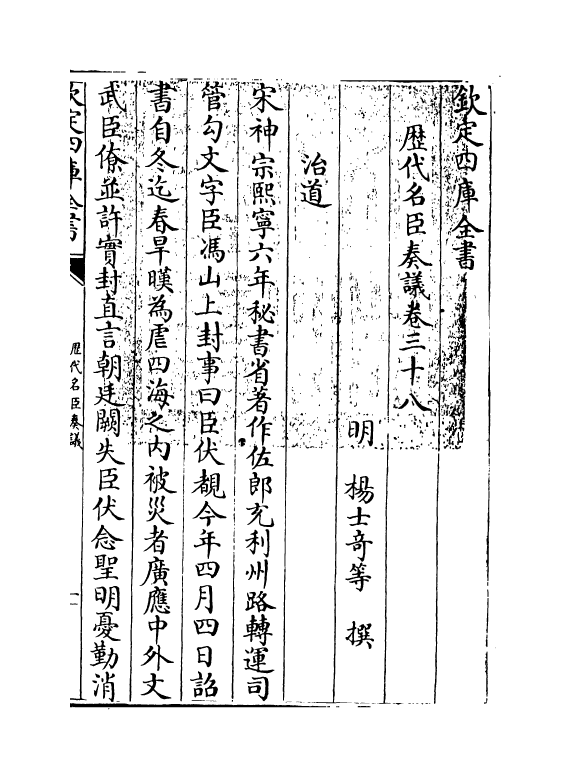 欽定四庫全書
歴代名臣奏議卷三十八
明 楊士竒等 撰
治道
宋神宗熙寧六年秘書省著作佐郎充利州路轉運司
管勾文字臣馮山上封事曰臣伏覩今年四月四日詔
書自冬迄春旱暵為虐四海之内被災者廣應中外文
武臣僚並許實封直言朝廷闕失臣伏念聖明憂勤消
欽定四庫全書
歴代名臣奏議
一